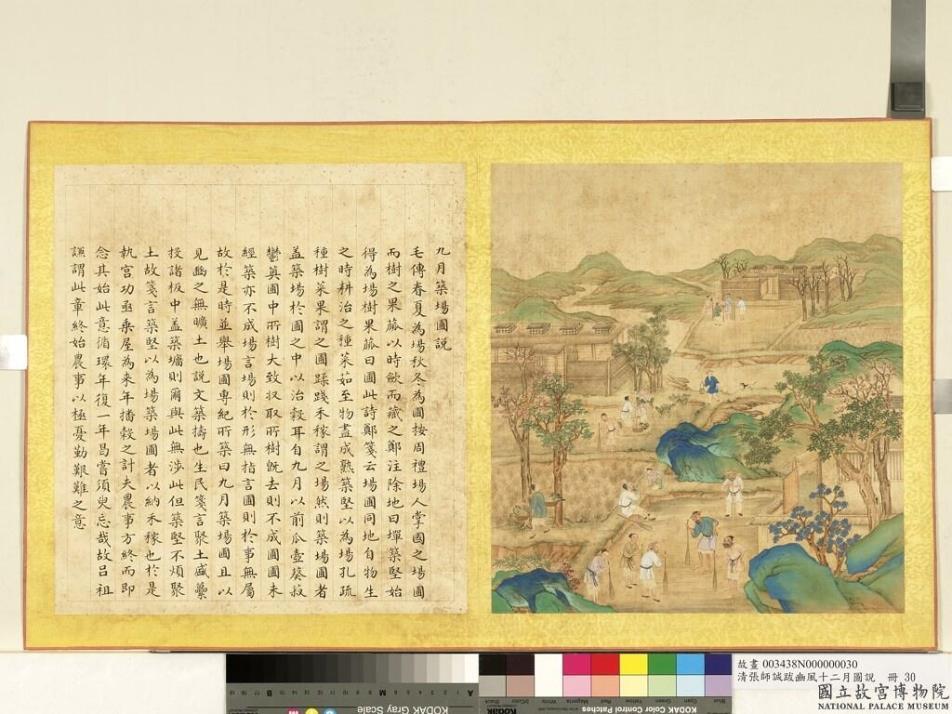 九月築場圃說
毛傳春夏為場秋冬為圃按周禮場人掌國之場圃
而樹之果蓏以時斂而藏之鄭注除地曰墠築堅始
得為場樹果蓏曰圃此詩鄭箋云場圃同地自物生
之時耕治之種菜茹至物盡成熟築堅以為場孔疏
種樹菜果謂之圃蹂踐禾稼謂之場然則築場圃者
蓋築場於圃之中以治穀耳自九月以前瓜壺葵菽
鬱薁圃中所樹大致收取所樹既去則不成圃圃未
經築亦不成場言場則於形無指言圃則於事無屬
故於是時並舉場圃專紀所築曰九月築場圃且以
見豳之無曠土也說文築擣也生民箋言聚土盛虆
投諸板中蓋築墉則爾與此無涉此但築堅不煩聚
土故箋言築堅以為場築場圃者以納禾稼也於是
執宮功亟乘屋為來年播穀之計夫農事方終而即
念其始此意循環年復一年曷嘗須臾忘哉故呂祖
謙謂此章終始農事以極憂勤艱難之意
故畫 003438N000000030
清張師誠跋豳風十二月圖說 冊 30
國立故宮博物院
NATIONAL PALACE MUSEUM
KODAK Gray Scale
Kodak
KODAK Color Control Patches